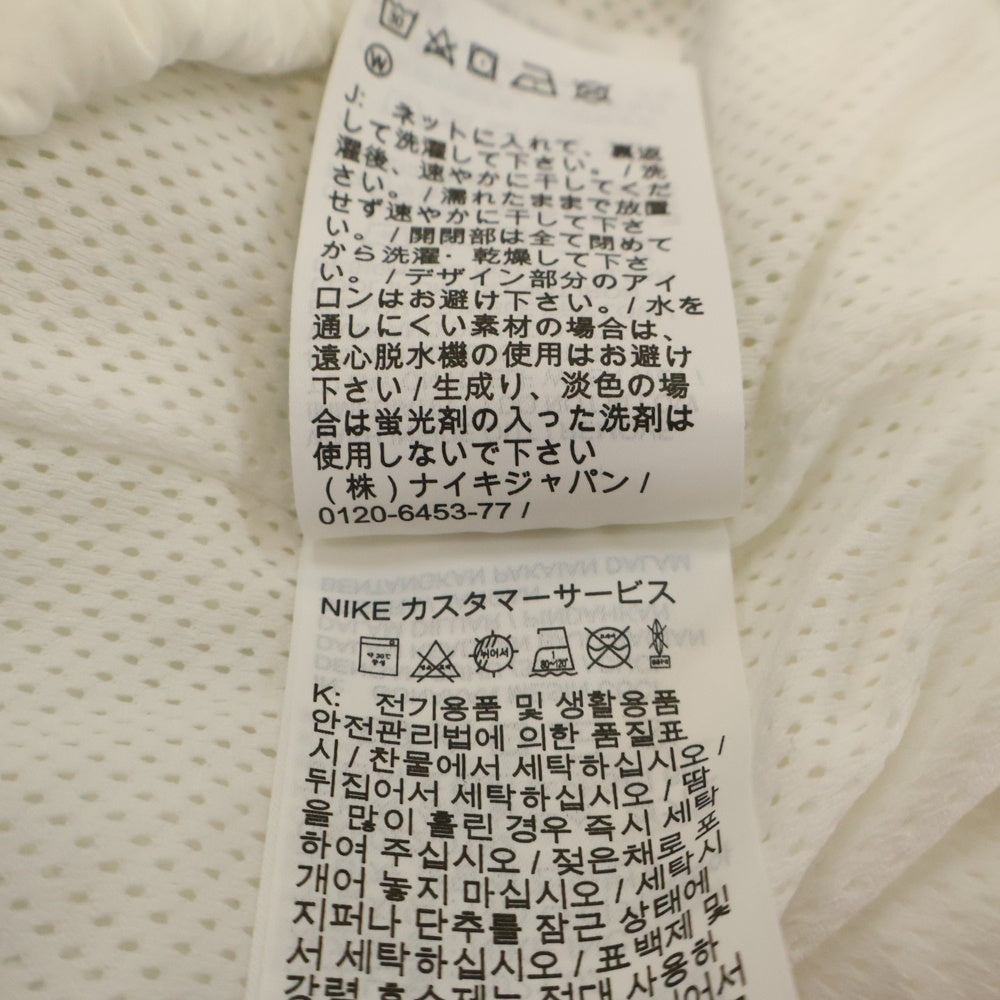 W
J: ネットに入れて、裏返
して洗濯して下さい。/ 洗
濯後、速やかに干してくだ
さい。/ 濡れたままで放置
せず速やかに干して下さ
い。/ 開閉部は全て閉めて
から洗濯・乾燥して下さ
い。/ デザイン部分のアイ
ロンはお避け下さい。/ 水を
通しにくい素材の場合は、
遠心脱水機の使用はお避け
下さい / 生成り、淡色の場
合は蛍光剤の入った洗剤は
使用しないで下さい
(株)ナイキジャパン /
0120-6453-77 /
NIKE カスタマーサービス
80~120°
K: 전기용품 및 생활용품
안전관리법에 의한 품질표
시 / 찬물에서 세탁하십시오 /
뒤집어서 세탁하십시오 / 땀
을 많이 흘린 경우 즉시 세탁
하여 주십시오 / 젖은채로 포
개어 놓지 마십시오 / 세탁시
지퍼나 단추를 잠근 상태에
서 세탁하십시오 / 표백제 및